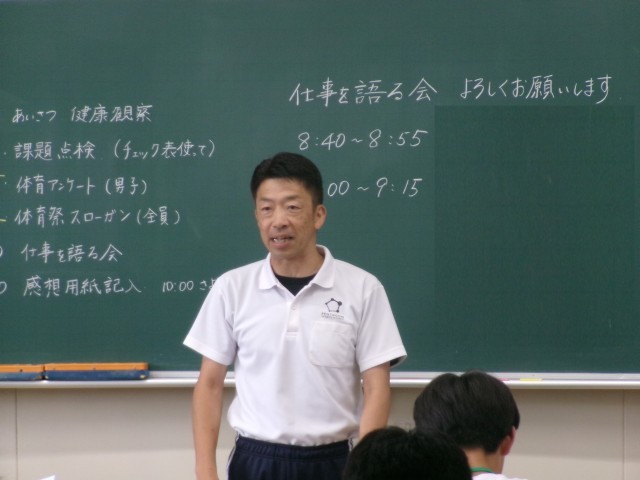 あいさつ 健康観察
・課題点検（チェック表使って）
体育アンケート（男子）
体育祭スローガン（全員）
仕事を語る会
感想用紙記入 10:00さ
仕事を語る会 よろしくお願いします
8:40～8:55
:00～9:15